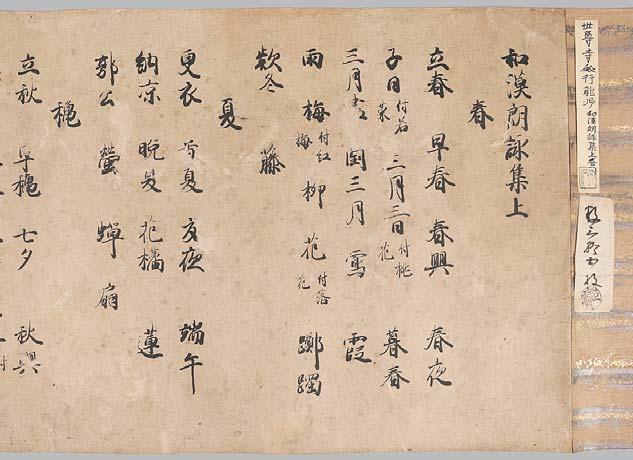 世尊寺殿行能卿 和漢朗詠集上巻
和漢朗詠集上
春
立春 早春 春興 春夜
子日付若菜 三月三日付桃花 暮春
三月盡 閏三月 鶯 霞
雨 梅付紅梅 柳 花付落花 躑躅
欵冬 藤
夏
更衣 首夏 夏夜 端午
納凉 晩夏 花橘 蓮
郭公 螢 蝉 扇
穐
立秋 早穐 七夕 秋興